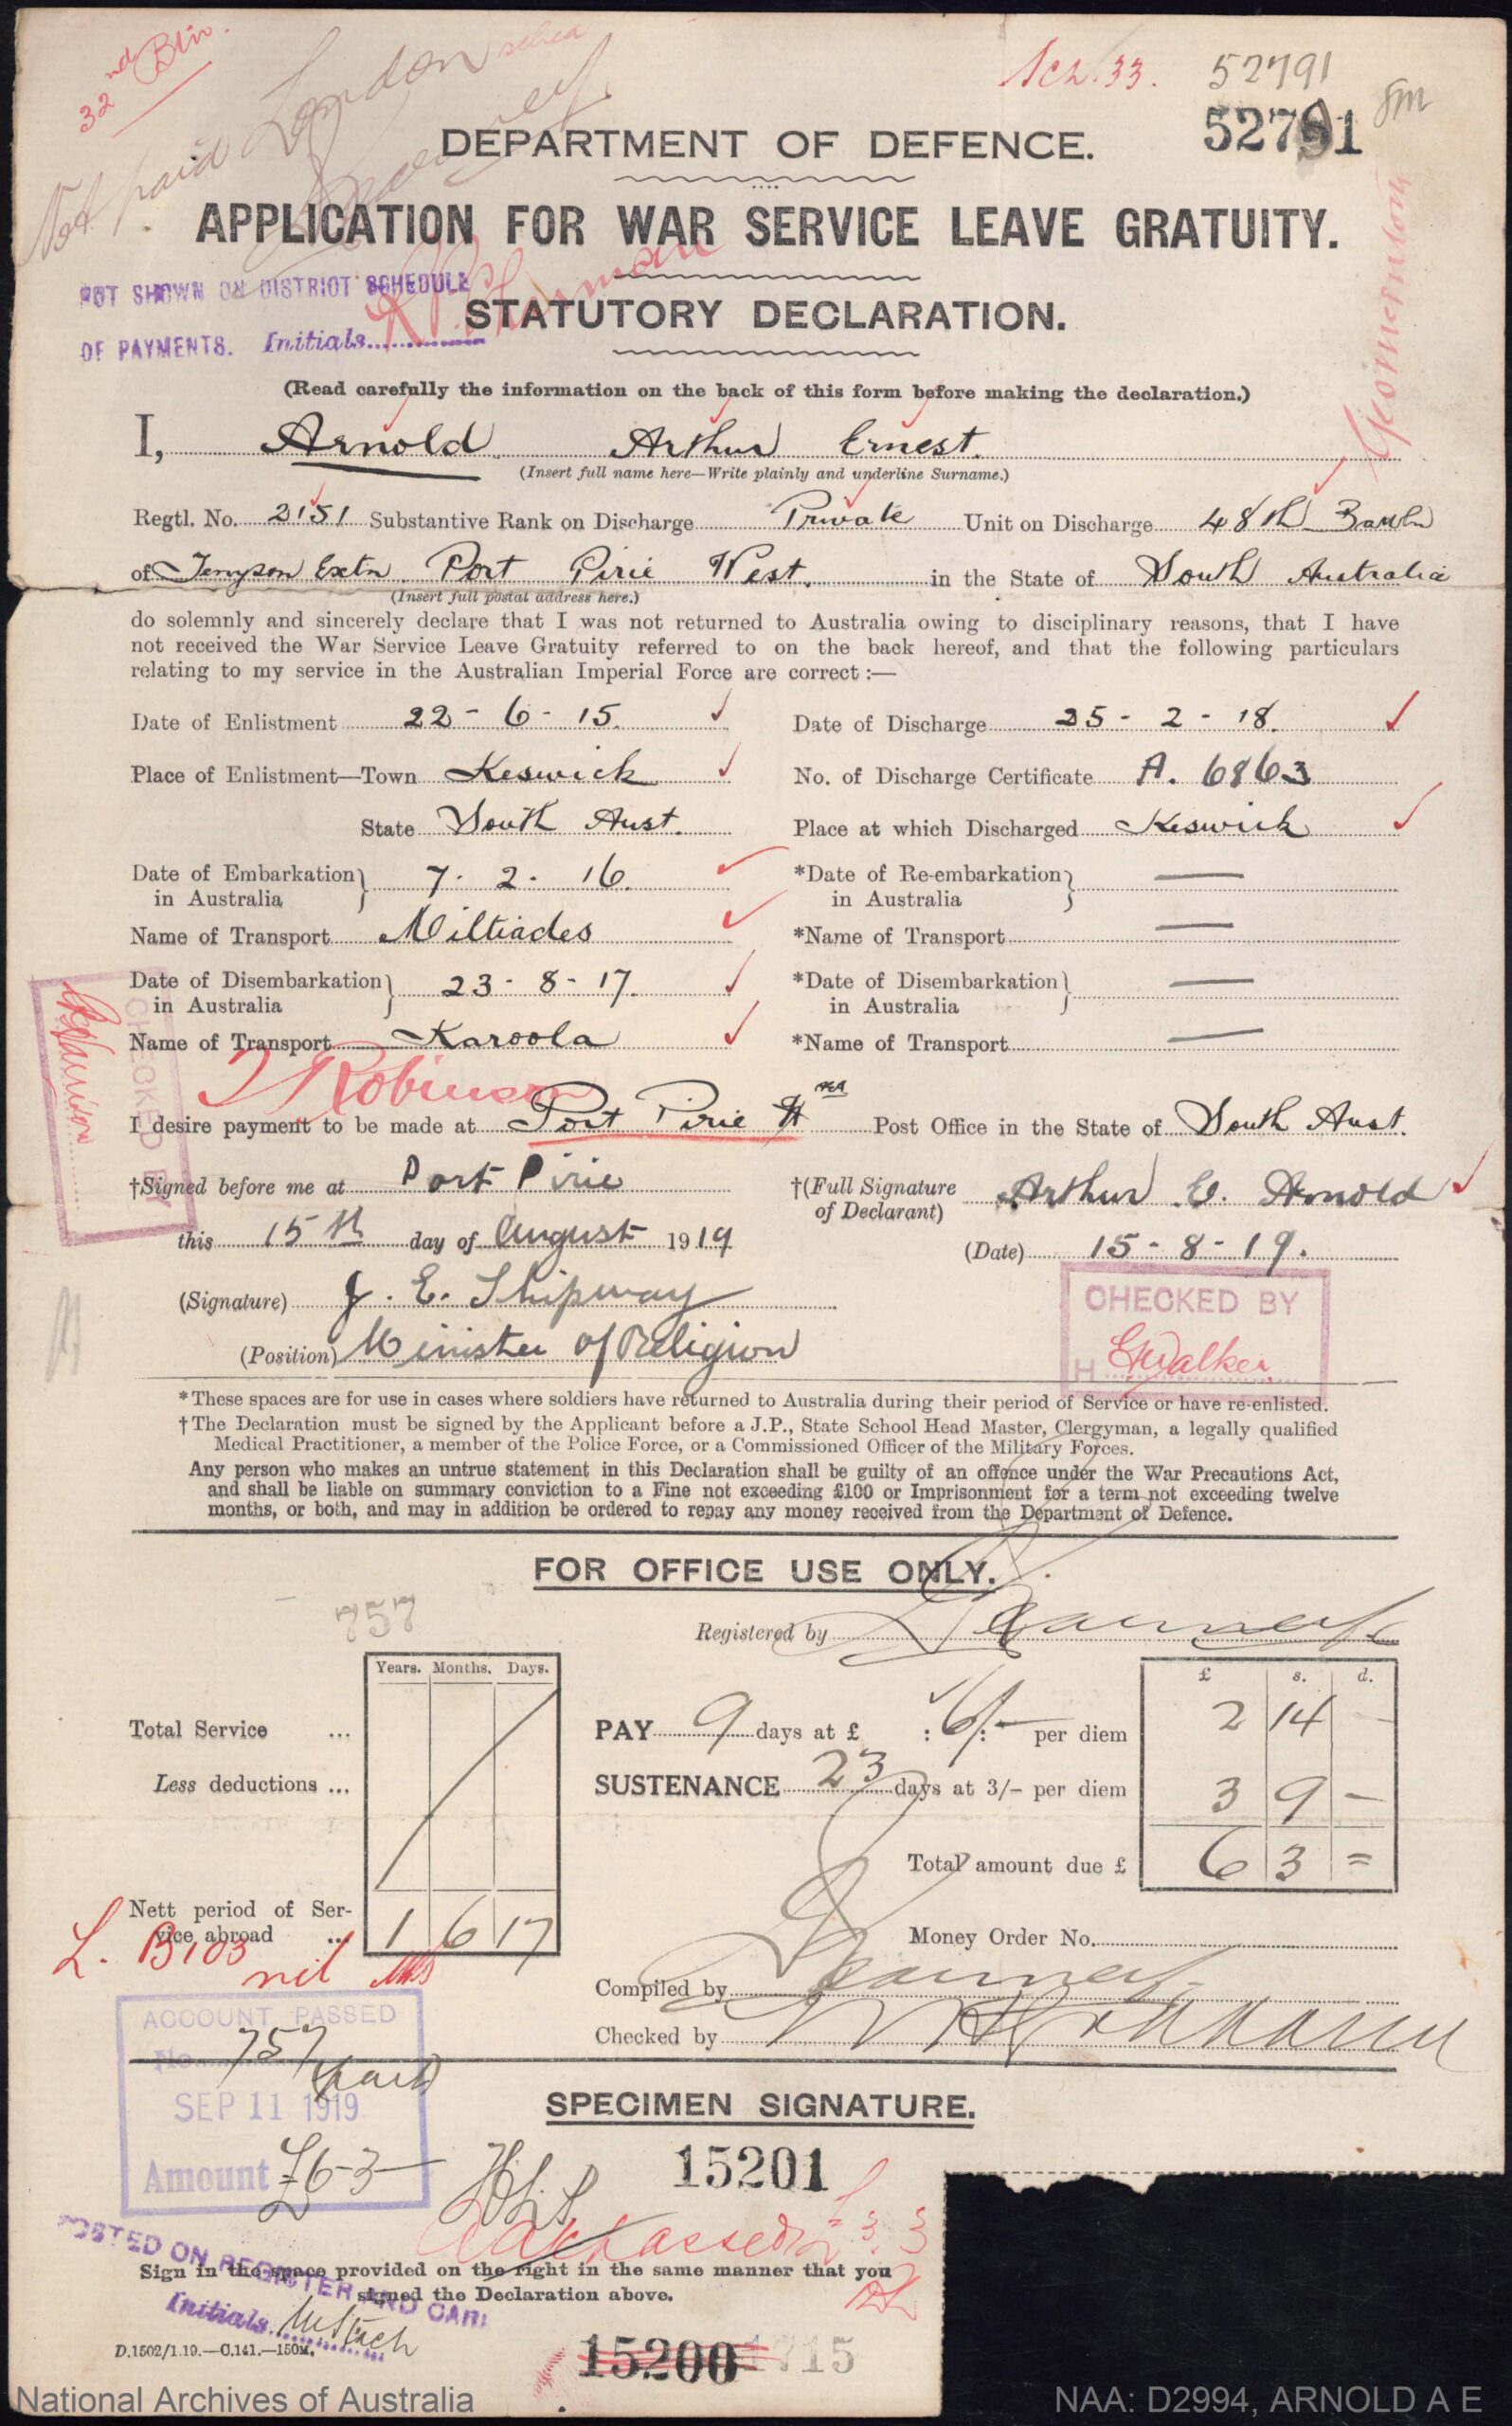 32nd Btn.
Not paid London
Sch. 33. 52791
52791
DEPARTMENT OF DEFENCE.
APPLICATION FOR WAR SERVICE LEAVE GRATUITY.
NOT SHOWN ON DISTRICT SCHEDULE
OF PAYMENTS. Initials
STATUTORY DECLARATION.
(Read carefully the information on the back of this form before making the declaration.)
I, Arnold Arthur Ernest.
(Insert full name here—Write plainly and underline Surname.)
Regtl. No. 2151 Substantive Rank on Discharge Private Unit on Discharge 48th Battn
of Tenyson Extn. Port Pirie West. in the State of South Australia
(Insert full postal address here.)
do solemnly and sincerely declare that I was not returned to Australia owing to disciplinary reasons, that I have
not received the War Service Leave Gratuity referred to on the back hereof, and that the following particulars
relating to my service in the Australian Imperial Force are correct:—
Date of Enlistment 22-6-15. Date of Discharge 25-2-18.
Place of Enlistment—Town Keswick No. of Discharge Certificate A. 6863
State South Aust. Place at which Discharged Keswick
Date of Embarkation in Australia 7. 2. 16. *Date of Re-embarkation in Australia —
Name of Transport Miltiades *Name of Transport —
Date of Disembarkation in Australia 23-8-17. *Date of Disembarkation in Australia —
Name of Transport Karoola *Name of Transport —
Robinson
CHECKED BY
I desire payment to be made at Port Pirie Post Office in the State of South Aust.
†Signed before me at Port Pirie †(Full Signature of Declarant) Arthur E. Arnold
this 15th day of August 1919 (Date) 15-8-19.
(Signature) J. E. Shipway
CHECKED BY
(Position) Minister of Religion
Walker
*These spaces are for use in cases where soldiers have returned to Australia during their period of Service or have re-enlisted.
†The Declaration must be signed by the Applicant before a J.P., State School Head Master, Clergyman, a legally qualified
Medical Practitioner, a member of the Police Force, or a Commissioned Officer of the Military Forces.
Any person who makes an untrue statement in this Declaration shall be guilty of an offence under the War Precautions Act,
and shall be liable on summary conviction to a Fine not exceeding £100 or Imprisonment for a term not exceeding twelve
months, or both, and may in addition be ordered to repay any money received from the Department of Defence.
FOR OFFICE USE ONLY.
757
Registered by
Years. Months. Days.
£ s. d.
Total Service ...
PAY 9 days at £ : 6/- : per diem 2 14 –
Less deductions ...
SUSTENANCE 23 days at 3/- per diem 3 9 –
Total amount due £ 6 3 =
Nett period of Service abroad ... 1 6 17
L. B103 nil
Money Order No.
Compiled by
Checked by
ACCOUNT PASSED
No. 757
SEP 11 1919
Amount £6-3-
SPECIMEN SIGNATURE.
15201
POSTED ON REGISTER AND CARD
Initials
Sign in the space provided on the right in the same manner that you
signed the Declaration above.
D.1502/1.19.—C.141.—150M.
15200 1715
National Archives of Australia
NAA: D2994, ARNOLD A E